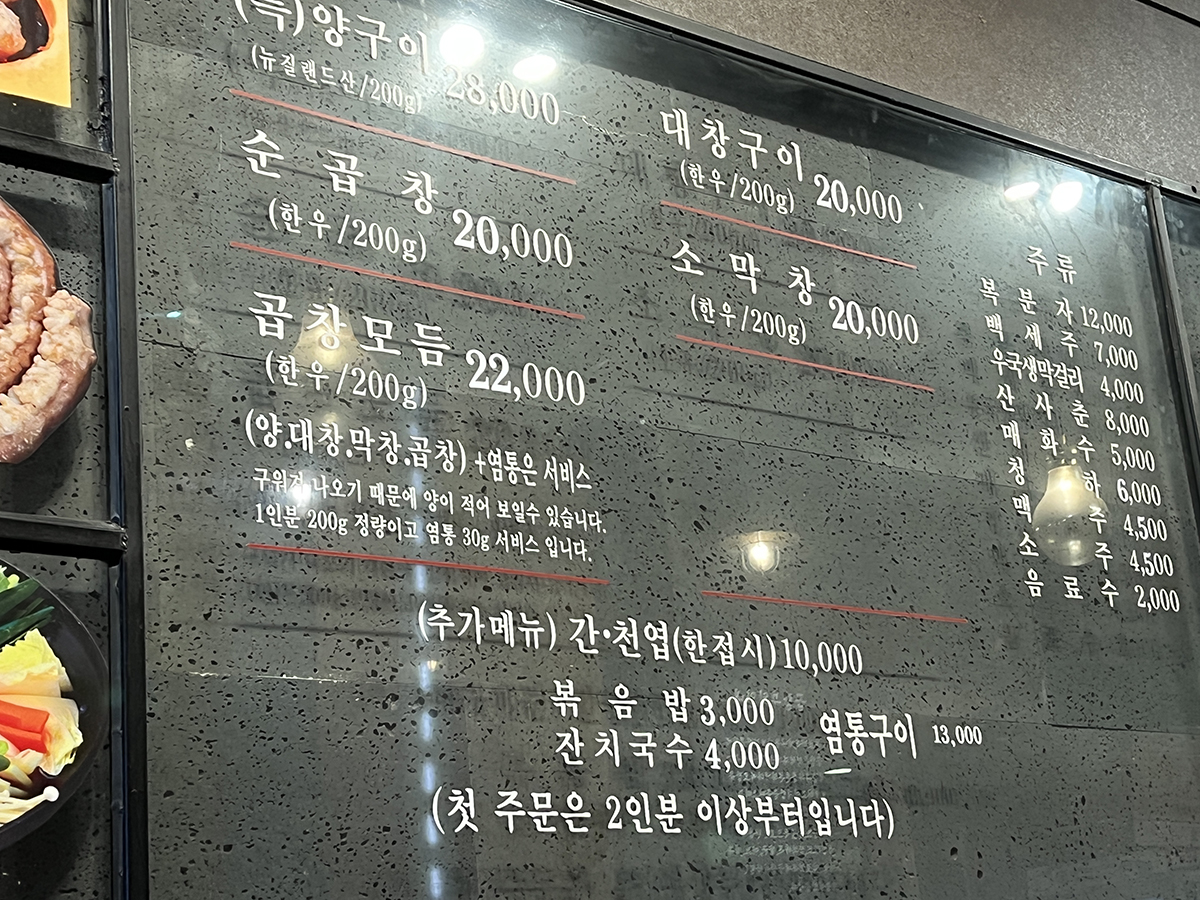 (특)양구이 28,000
(뉴질랜드산/200g)
순 곱 창 20,000
(한우/200g)
곱창모듬 22,000
(한우/200g)
(양.대창.막창.곱창) +염통은 서비스
구워져 나오기 때문에 양이 적어 보일수 있습니다.
1인분 200g 정량이고 염통 30g 서비스 입니다.
대창구이 20,000
(한우/200g)
소 막 창 20,000
(한우/200g)
주류
복 분 자 12,000
백 세 주 7,000
우국생막걸리 4,000
산 사 춘 8,000
매 화 수 5,000
청 하 6,000
맥 주 4,500
소 주 4,500
음 료 수 2,000
(추가메뉴) 간·천엽(한접시) 10,000
볶 음 밥 3,000
잔치국수 4,000
염통구이 13,000
(첫 주문은 2인분 이상부터입니다)